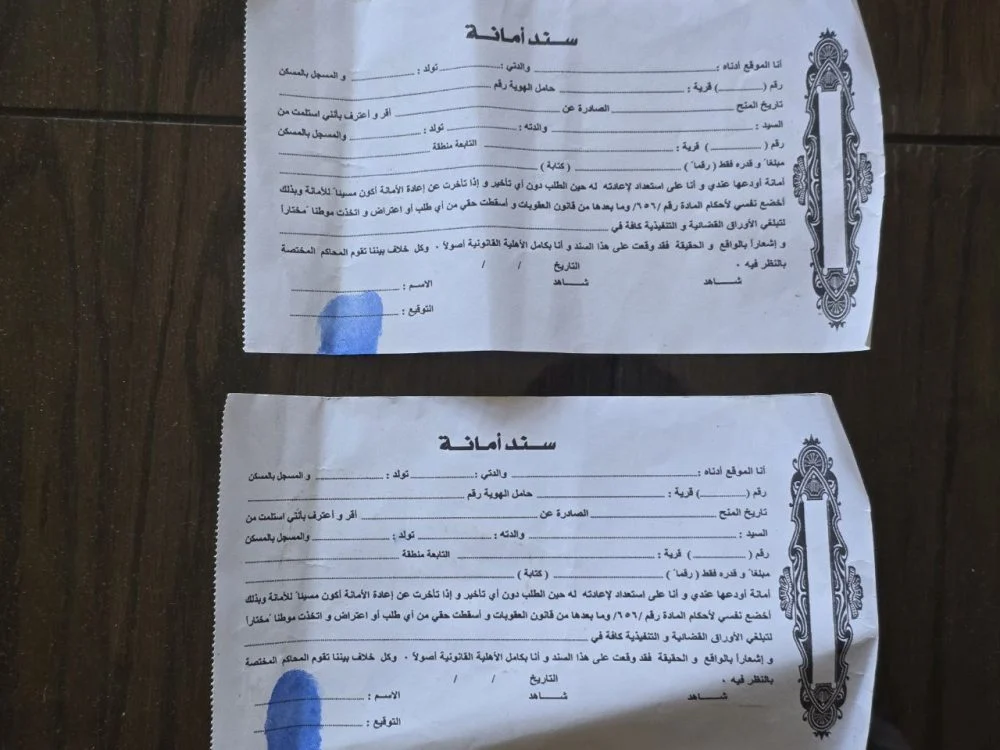 سند أمانة
أنا الموقع أدناه : ........ والدتي : ........ تولد : ........ و المسجل بالمسكن
رقم ( ........ ) قرية : ........ حامل الهوية رقم ........
تاريخ المنح ........ الصادرة عن ........ أقر و أعترف بأنني استلمت من
السيد : ........ والدته : ........ تولد : ........ والمسجل بالمسكن
رقم ( ........ ) قرية : ........ التابعة منطقة ........
مبلغاً و قدره فقط ( رقماً ) ........ ( كتابة ) ........
أمانة أودعها عندي و أنا على استعداد لإعادته له حين الطلب دون أي تأخير و إذا تأخرت عن إعادة الأمانة أكون مسيئاً للأمانة وبذلك
أخضع نفسي لأحكام المادة رقم /٦٥٦/ وما بعدها من قانون العقوبات و أسقطت حقي من أي طلب أو اعتراض و اتخذت موطناً مختاراً
لتبلغي الأوراق القضائية و التنفيذية كافة في ........
و إشعاراً بالواقع و الحقيقة فقد وقعت على هذا السند و أنا بكامل الأهلية القانونية أصولاً . وكل خلاف بيننا تقوم المحاكم المختصة
بالنظر فيه . التاريخ / /
شاهد شاهد الاسم : ........
التوقيع : ........
سند أمانة
أنا الموقع أدناه : ........ والدتي : ........ تولد : ........ و المسجل بالمسكن
رقم ( ........ ) قرية : ........ حامل الهوية رقم ........
تاريخ المنح ........ الصادرة عن ........ أقر و أعترف بأنني استلمت من
السيد : ........ والدته : ........ تولد : ........ والمسجل بالمسكن
رقم ( ........ ) قرية : ........ التابعة منطقة ........
مبلغاً و قدره فقط ( رقماً ) ........ ( كتابة ) ........
أمانة أودعها عندي و أنا على استعداد لإعادته له حين الطلب دون أي تأخير و إذا تأخرت عن إعادة الأمانة أكون مسيئاً للأمانة وبذلك
أخضع نفسي لأحكام المادة رقم /٦٥٦/ وما بعدها من قانون العقوبات و أسقطت حقي من أي طلب أو اعتراض و اتخذت موطناً مختاراً
لتبلغي الأوراق القضائية و التنفيذية كافة في ........
و إشعاراً بالواقع و الحقيقة فقد وقعت على هذا السند و أنا بكامل الأهلية القانونية أصولاً . وكل خلاف بيننا تقوم المحاكم المختصة
بالنظر فيه . التاريخ / /
شاهد شاهد الاسم : ........
التوقيع : ........